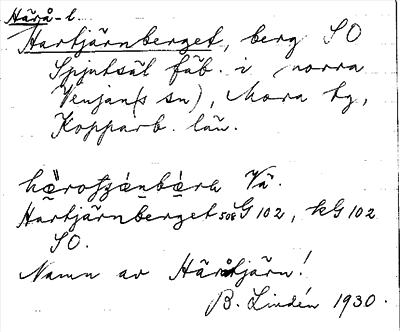 Härå-l.
Hartjärnberget, berg SO
Spjutsäl fäb. i norra
Venjan(s sn), Mora tg,
Kopparb. län.
Va.
Hartjärnberget SO5G102, kG 102
SO.
Namn av Häråtjärn!
B. Lindén 1930.